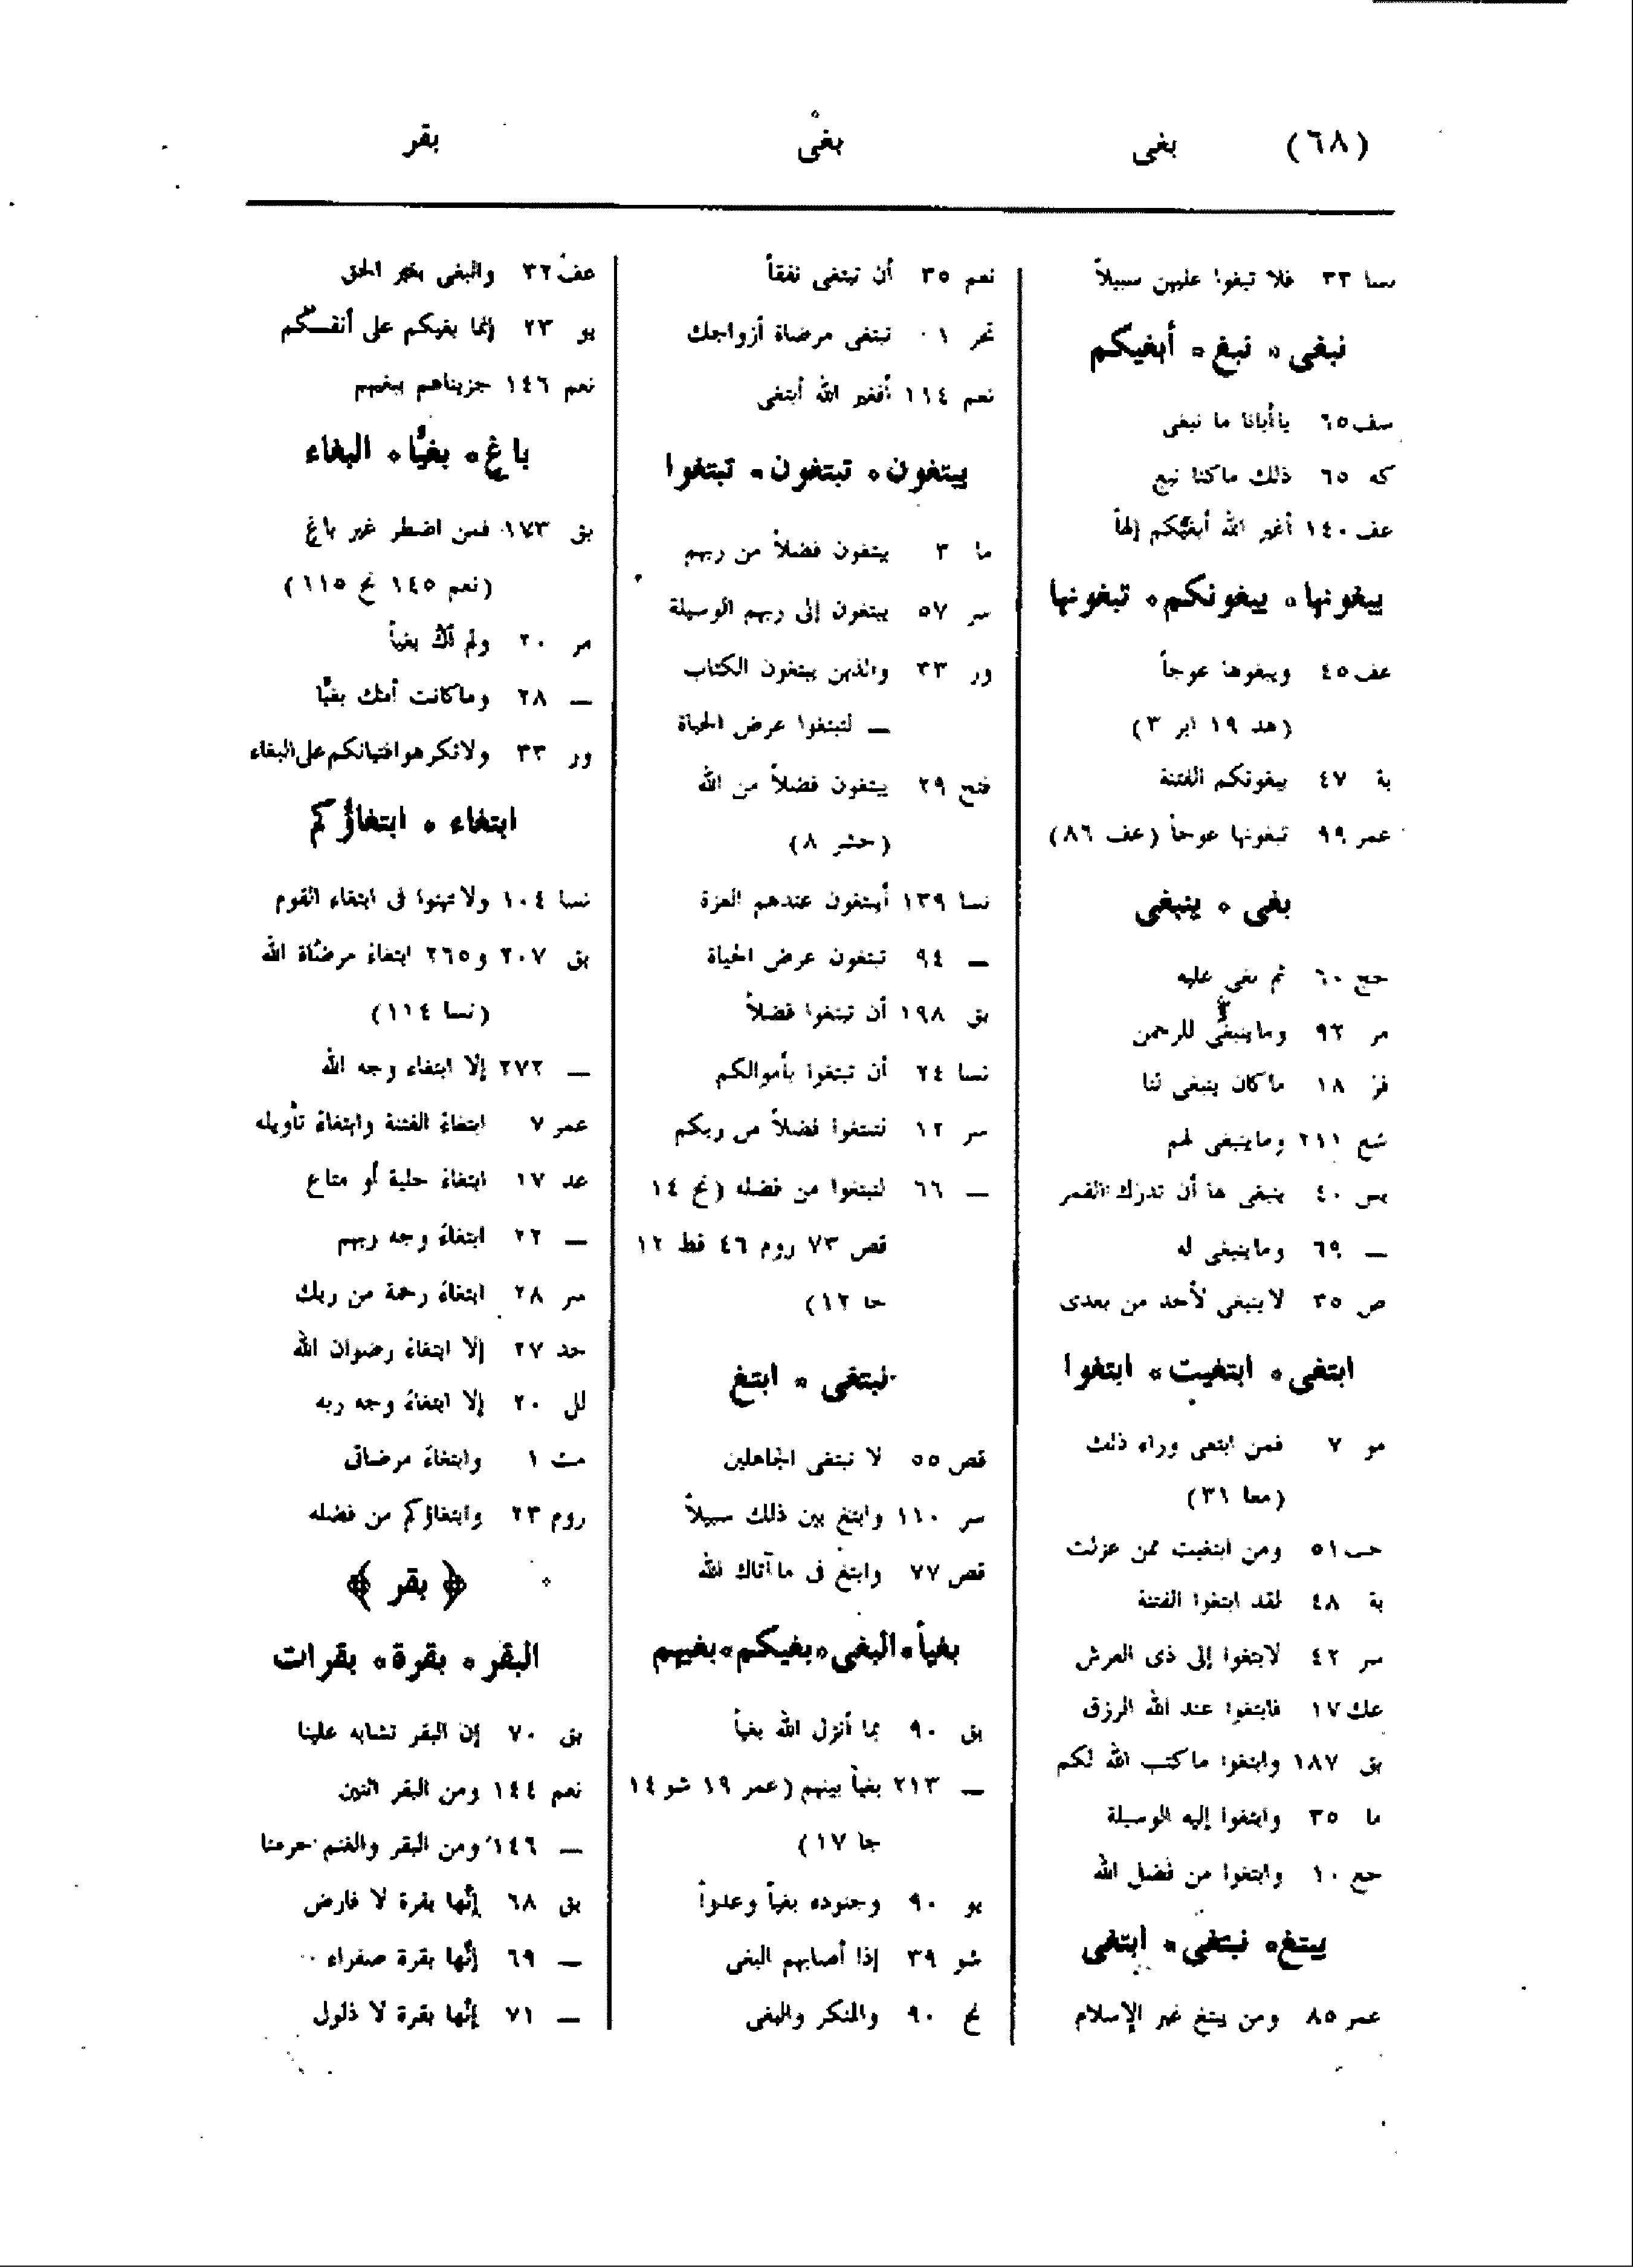 (٦٨) بغى بغى بقر
نسا ٣٣ فلا تبغوا عليهن سبيلاً
نبغى ٭ نبغ ٭ أبغيكم
سف ٦٥ ياأبانا ما نبغى
كه ٦٥ ذلك ماكنا نبغ
عف ١٤٠ أغير الله أبغيكم إلهاً
يبغونها ٭ يبغونكم ٭ تبغونها
عف ٤٥ ويبغوها عوجاً
(هد ١٩ ابر ٣)
بة ٤٧ يبغونكم الفتنة
عمر ٩٩ تبغونها عوجاً (عف ٨٦)
بغى ٭ ينبغى
حج ٦٠ ثم بغى عليه
مر ٩٢ وماينبغى للرحمن
فر ١٨ ماكان ينبغى لنا
شع ٢١١ وماينبغى لهم
يس ٤٠ ينبغى لها أن تدرك القمر
ــ ٦٩ وماينبغى له
ص ٣٥ لاينبغى لأحد من بعدى
ابتغى ٭ ابتغيت ٭ ابتغوا
مو ٧ فمن ابتغى وراء ذلك
(معا ٣١)
حب ٥١ ومن ابتغيت ممن عزلت
بة ٤٨ لقد ابتغوا الفتنة
سر ٤٢ لابتغوا إلى ذى العرش
عك ١٧ فابتغوا عند الله الرزق
بق ١٨٧ وابتغوا ماكتب الله لكم
ما ٣٥ وابتغوا إليه الوسيلة
جع ١٠ وابتغوا من فضل الله
يبتغ ٭ تبتغى ٭ ابتغى
عمر ٨٥ ومن يبتغ غير الإسلام
نعم ٣٥ أن تبتغى نفقاً
تحر ٠١ تبتغى مرضاة أزواجك
نعم ١١٤ أفغير الله أبتغى
يبتغون ٭ تبتغون ٭ تبتغوا
ما ٣ يبتغون فضلاً من ربهم
سر ٥٧ يبتغون إلى ربهم الوسيلة
ور ٣٣ والذين يبتغون الكتاب
ــ لتبتغوا عرض الحياة
فتح ٢٩ يبتغون فضلاً من الله
(حشر ٨)
نسا ١٣٩ أيبتغون عندهم العزة
ــ ٩٤ تبتغون عرض الحياة
بق ١٩٨ أن تبتغوا فضلاً
نسا ٢٤ أن تبتغوا بأموالكم
سر ١٢ لتبتغوا فضلاً من ربكم
ــ ٦٦ لتبتغوا من فضله (نح ١٤
قص ٧٣ روم ٤٦ فط ١٢
جا ١٢)
نبتغى ٭ ابتغ
قص ٥٥ لا نبتغى الجاهلين
سر ١١٠ وابتغ بين ذلك سبيلاً
قص ٧٧ وابتغ فى ماآتاك الله
بغياً ٭ البغى ٭ بغيكم ٭ بغيهم
بق ٩٠ بما أنزل الله بغياً
ــ ٢١٣ بغياً بينهم (عمر ١٩ شو ١٤
جا ١٧)
يو ٩٠ وجنوده بغياً وعدواً
شو ٣٩ إذا أصابهم البغى
نح ٩٠ والمنكر والبغى
عف ٣٢ والبغى بغير الحق
يو ٢٣ إنما بغيكم على أنفسكم
نعم ١٤٦ جزيناهم ببغيهم
باغ ٭ بغيًّا ٭ البغاء
بق ١٧٣ فمن اضطر غير باغ
(نعم ١٤٥ نح ١١٥)
مر ٢٠ ولم أك بغياً
ــ ٢٨ وماكانت أمك بغيًّا
ور ٣٣ ولاتكرهوافتياتكم على البغاء
ابتغاء ٭ ابتغاؤكم
نسا ١٠٤ ولاتهنوا فى ابتغاء القوم
بق ٢٠٧ و٢٦٥ ابتغاءَ مرضاة الله
(نسا ١١٤)
ــ ٢٧٢ إلا ابتغاء وجه الله
عمر ٧ ابتغاءَ الفتنة وابتغاءَ تأويله
عد ١٧ ابتغاءَ حلية أو متاع
ــ ٢٢ ابتغاءَ وجه ربهم
سر ٢٨ ابتغاءَ رحمة من ربك
حد ٢٧ إلا ابتغاءَ رضوان الله
لل ٢٠ إلا ابتغاءَ وجه ربه
مت ١ وابتغاءَ مرضاتى
روم ٢٣ وابتغاؤكم من فضله
﴿ بقر ﴾
البقر ٭ بقرة ٭ بقرات
بق ٧٠ إن البقر تشابه علينا
نعم ١٤٤ ومن البقر اثنين
ــ ١٤٦ ومن البقر والغنم حرمنا
بق ٦٨ إنّها بقرة لا فارض
ــ ٦٩ إنّها بقرة صفراء
ــ ٧١ إنّها بقرة لا ذلول